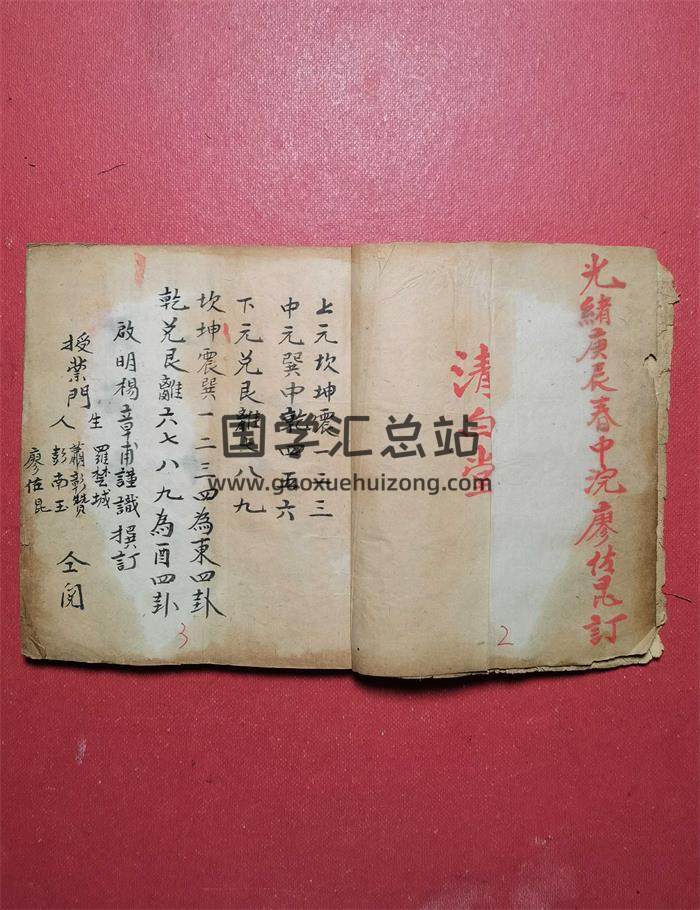 光緒庚辰春中浣廖佐昆訂
清白堂
2
上元坎坤震一二三
中元巽中乾四五六
下元兌艮離七八九
坎坤震巽一二三四為東四卦
乾兌艮離六七八九為酉四卦
啟明楊章甫謹識撰訂
授業門人生
羅楚城
蕭彰贊
彭南玉
廖佐昆
仝閱
3
国学汇总站
www.gaoxuehuizong.com